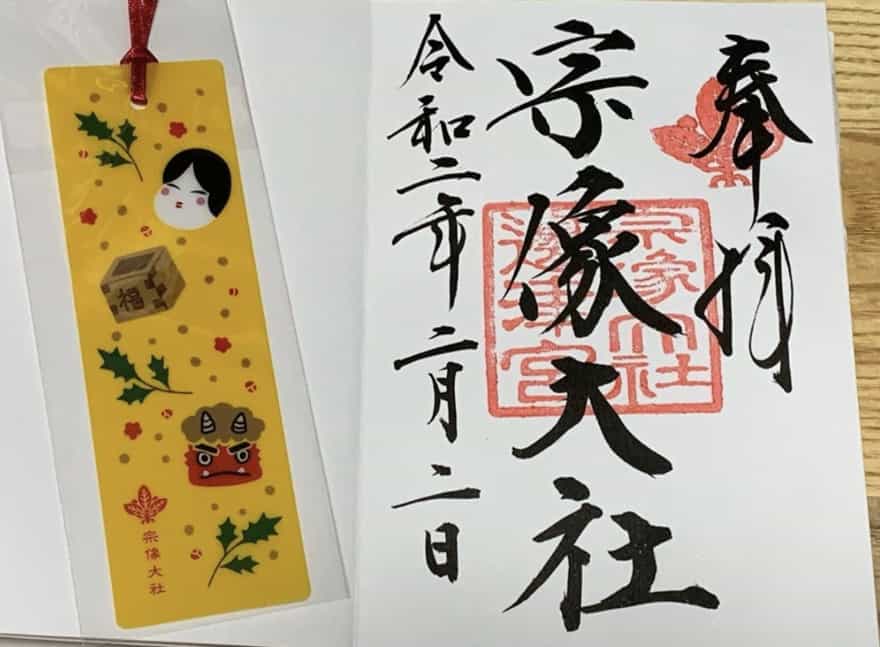 奉拝
宗像大社
宗像大社
邊津宮
令和二年二月二日
福
宗像大社